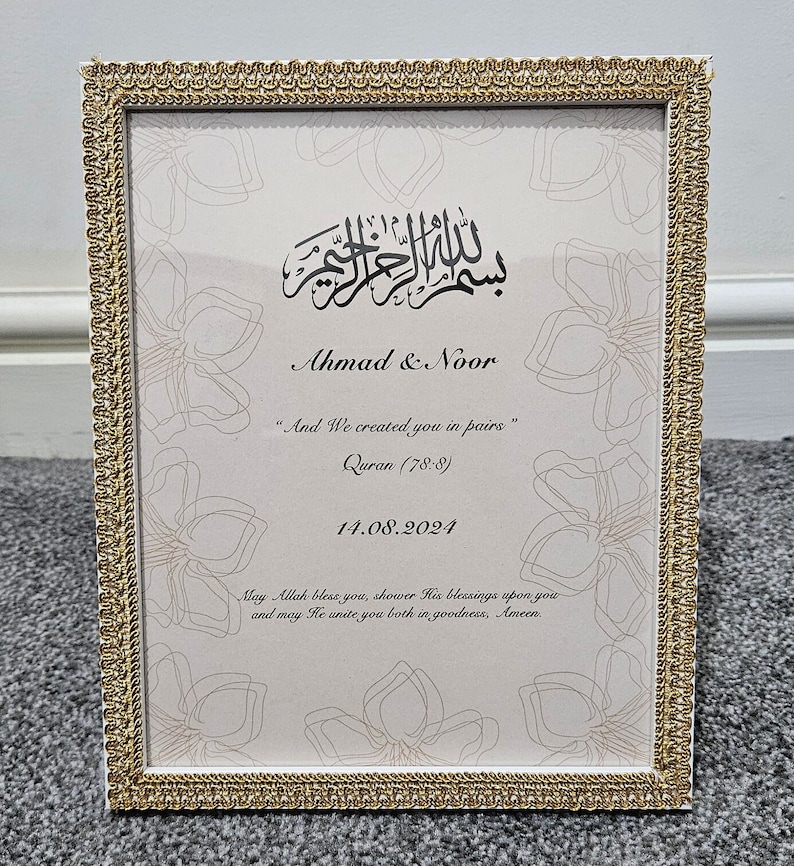 بسم الله الرحمن الرحيم
Ahmad & Noor
“ And We created you in pairs ”
Quran (78:8)
14.08.2024
May Allah bless you, shower His blessings upon you
and may He unite you both in goodness, Ameen.